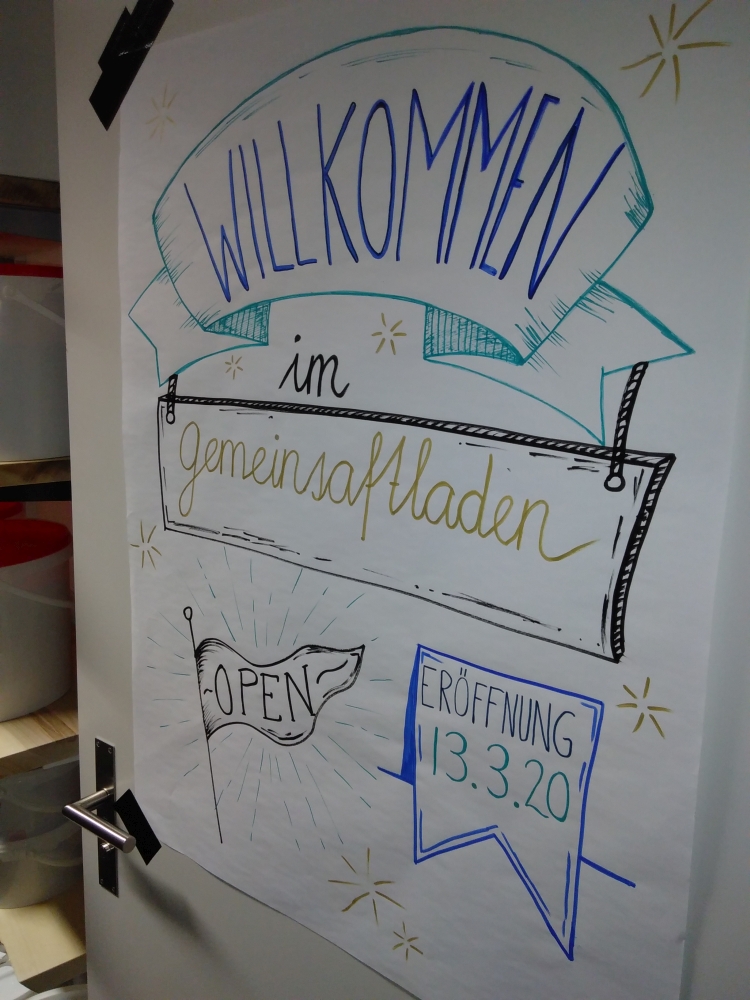 WILLKOMMEN
im
gemeinsaftladen
~OPEN~
ERÖFFNUNG
13.3.20